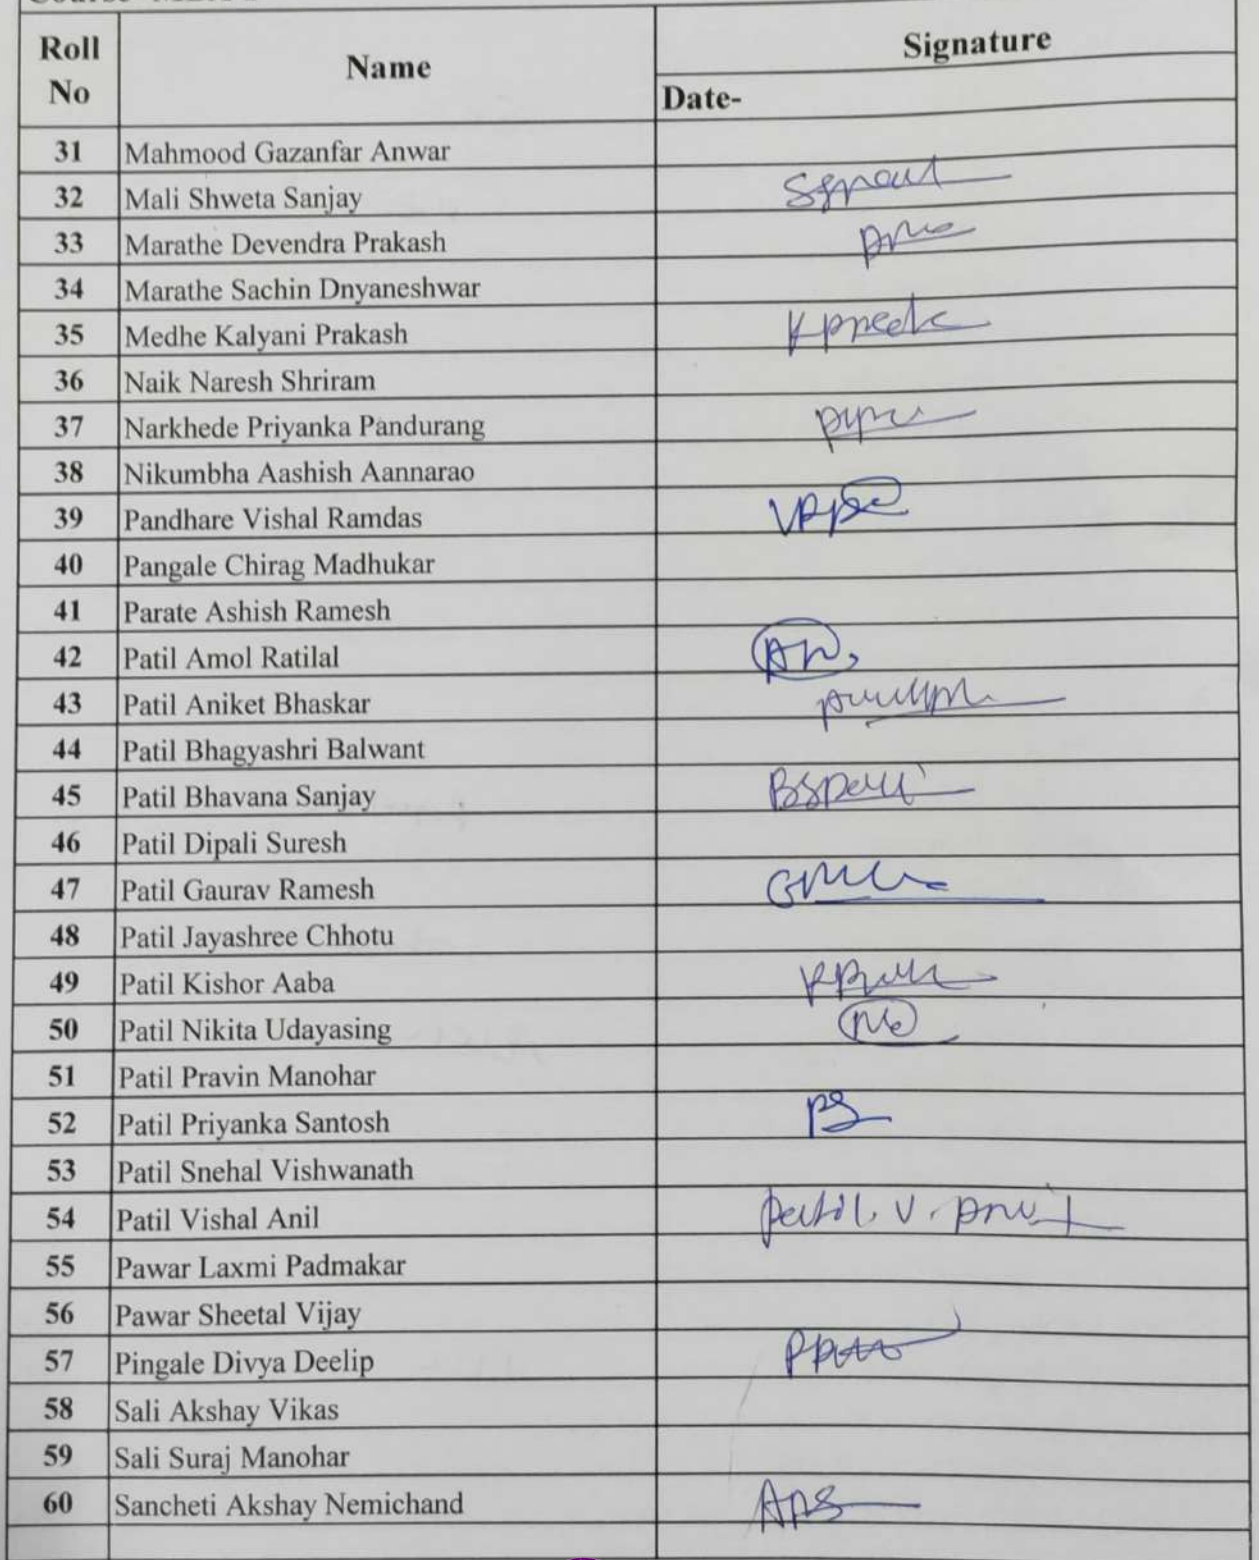 Roll No
Name
Signature
Date-
31 Mahmood Gazanfar Anwar
32 Mali Shweta Sanjay
33 Marathe Devendra Prakash
34 Marathe Sachin Dnyaneshwar
35 Medhe Kalyani Prakash
36 Naik Naresh Shriram
37 Narkhede Priyanka Pandurang
38 Nikumbha Aashish Aannarao
39 Pandhare Vishal Ramdas
40 Pangale Chirag Madhukar
41 Parate Ashish Ramesh
42 Patil Amol Ratilal
43 Patil Aniket Bhaskar
44 Patil Bhagyashri Balwant
45 Patil Bhavana Sanjay
46 Patil Dipali Suresh
47 Patil Gaurav Ramesh
48 Patil Jayashree Chhotu
49 Patil Kishor Aaba
50 Patil Nikita Udayasing
51 Patil Pravin Manohar
52 Patil Priyanka Santosh
53 Patil Snehal Vishwanath
54 Patil Vishal Anil
55 Pawar Laxmi Padmakar
56 Pawar Sheetal Vijay
57 Pingale Divya Deelip
58 Sali Akshay Vikas
59 Sali Suraj Manohar
60 Sancheti Akshay Nemichand